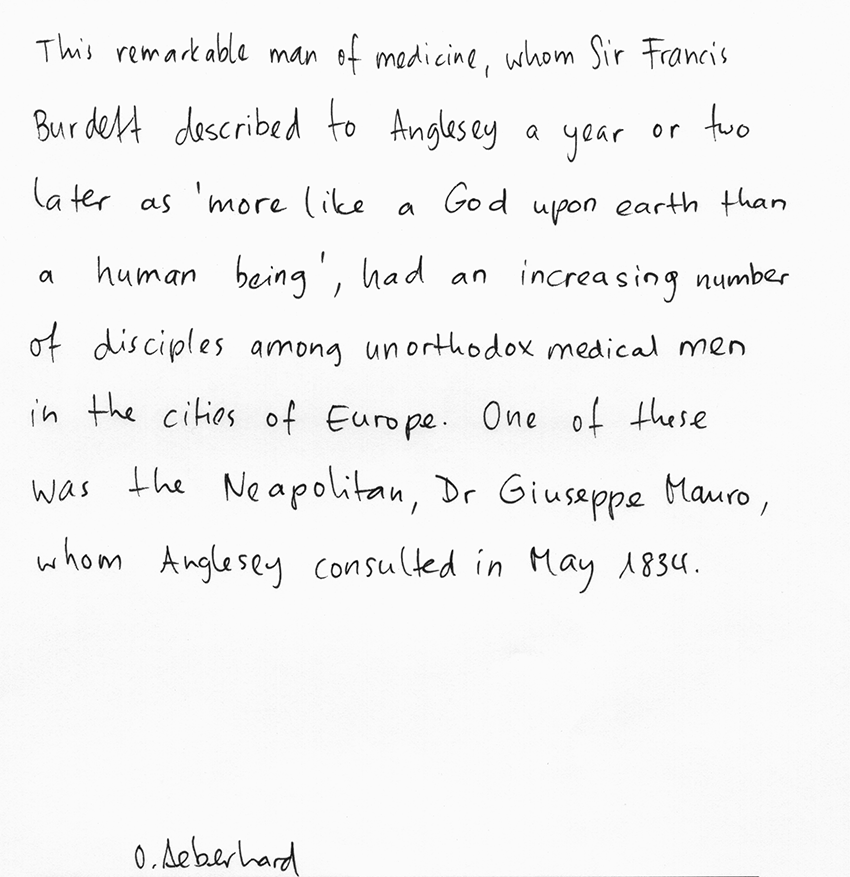 This remarkable man of medicine, whom Sir Francis
Burdett described to Anglesey a year or two
later as 'more like a God upon earth than
a human being', had an increasing number
of disciples among unorthodox medical men
in the cities of Europe. One of these
was the Neapolitan, Dr Giuseppe Mauro,
whom Anglesey consulted in May 1834.
O. Aeberhard